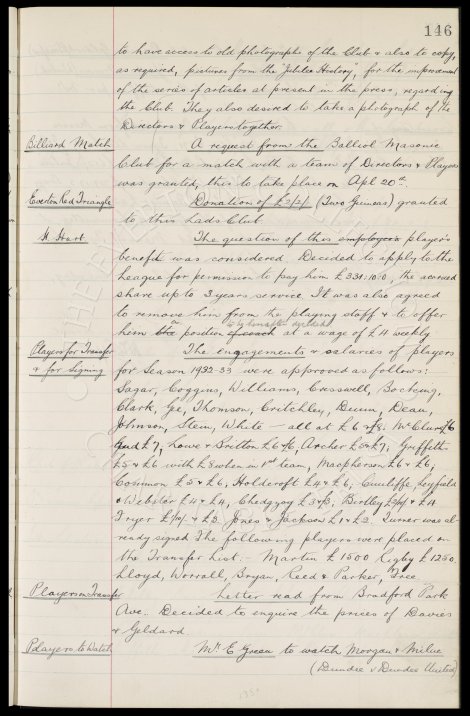 146
to have access to old photographs of the Club & also to copy,
as required, pictures from the "Jubilee History", for the improvement
of the series of articles at present in the press, regarding
the Club. They also desired to take a photograph of the
Directors & Players together.
Billiard Match A request from the Balliol Masonic
Club for a match with a team of Directors & Players
was granted, this to take place on Apl 20th.
Everton Red Triangle Donation of £2/2/- (Two Guineas) granted
to this Lads Club.
H. Hart The question of this employee's player's
benefit was considered Decided to apply to the
League for permission to pay him £331:10:0, the accrued
share up to 3 years service. It was also agreed
to remove him from the playing staff & to offer
him the position of coach at a wage of £4 weekly
Players for Transfer The engagements & salaries of players
& for Signing for Season 1932-33 were approved as follows:
Sagar, Coggins, Williams, Cresswell, Bocking,
Clark, Gee, Thomson, Critchley, Dunn, Dean,
Johnson, Stein, White – all at £6 & £8; McClure £6
and £7, Lowe & Britton £6 / £6, Archer £5 & £7; Griffiths
£5 & £6 with £8 when in 1st team, Macpherson £6 & £6,
Common £5 & £6; Holdcroft £4 & £6; Cunliffe, Leyfield
& Webster £4 & £4, Chedgzoy £3 / £3; Birtley
& £4
Fryer
& £3 Jones & Jackson £1 & £2. Turner was al-
ready signed The following players were placed on
the Transfer List:- Martin £1500 Rigby £1250.
Lloyd, Worrall, Bryan, Reed & Parker, Free.
Players on Transfer Letter read from Bradford Park
Ave.. Decided to enquire the prices of Davies
& Geldard
Players to Watch Mr E Green to watch Morgan & Milne
(Dundee v Dundee United)